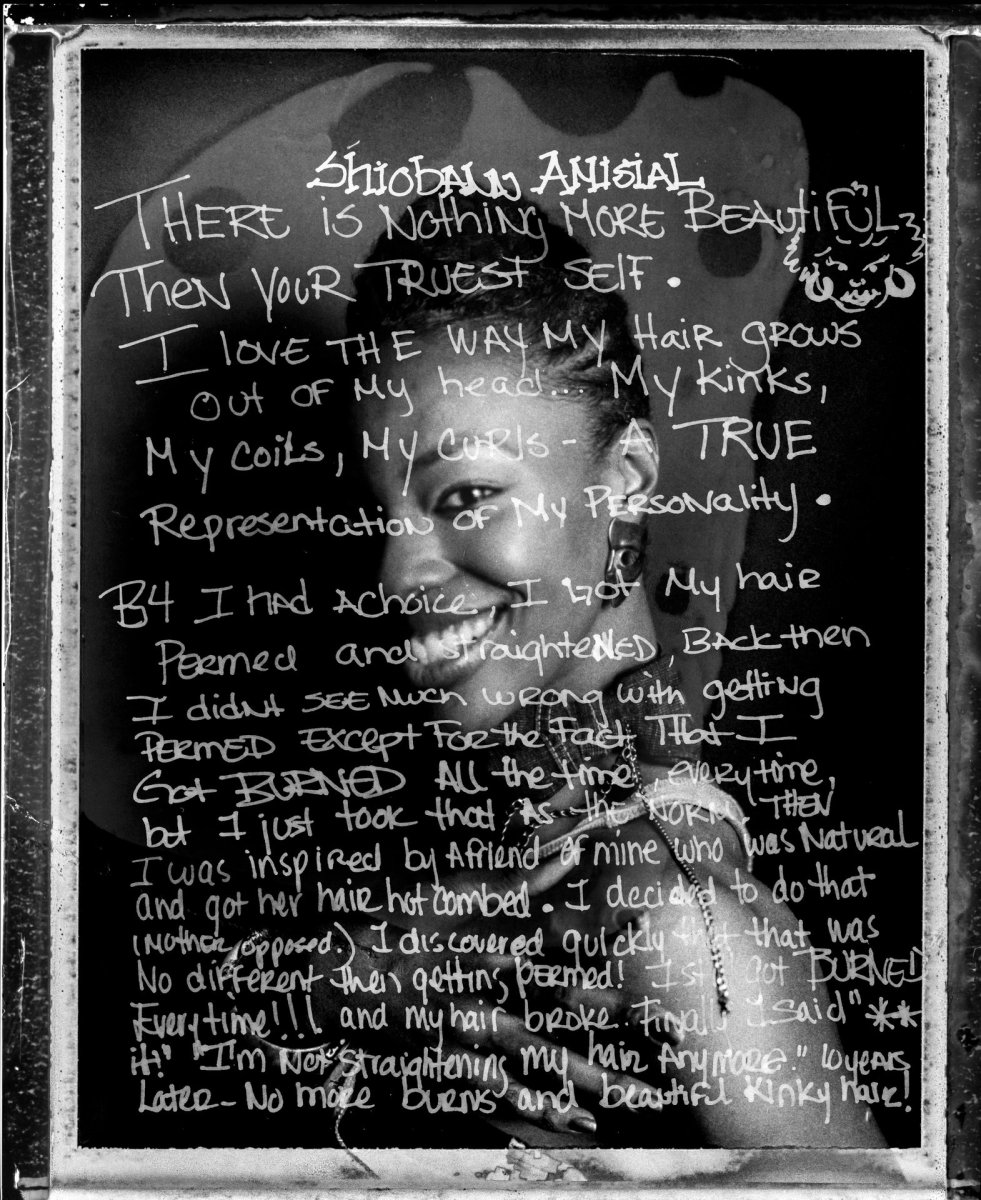 Shiobann Amisial
THERE is Nothing MORE BEAUtiFUL
Then YOUR TRUEST SELF.
I lOVE THE WAY MY HAiR GROWS
OUt OF My head... My Kinks,
My Coils, My CURls - A TRUE
Representation OF My PERSONality.
B4 I HAD A choice, I Got My hair
PERMed and straighteNED, BACK then
I didnt SEE Much wrong with getting
PERMED EXCEPT FOR the Fact That I
Got BURNED All the time, everytime,
but I just took that As the NORM. THEN
I was inspired by A friend of mine who was Natural
and got her hair hot combed. I decided to do that
(Mother opposed.) I discovered quickly that that was
No different then getting permed! I still got BURNED
Everytime!!! and my hair broke. Finally I said "**
it!" "I'm Not straightening my hair Anymore." 10 years
Later - No more burns and beautiful Kinky hair!